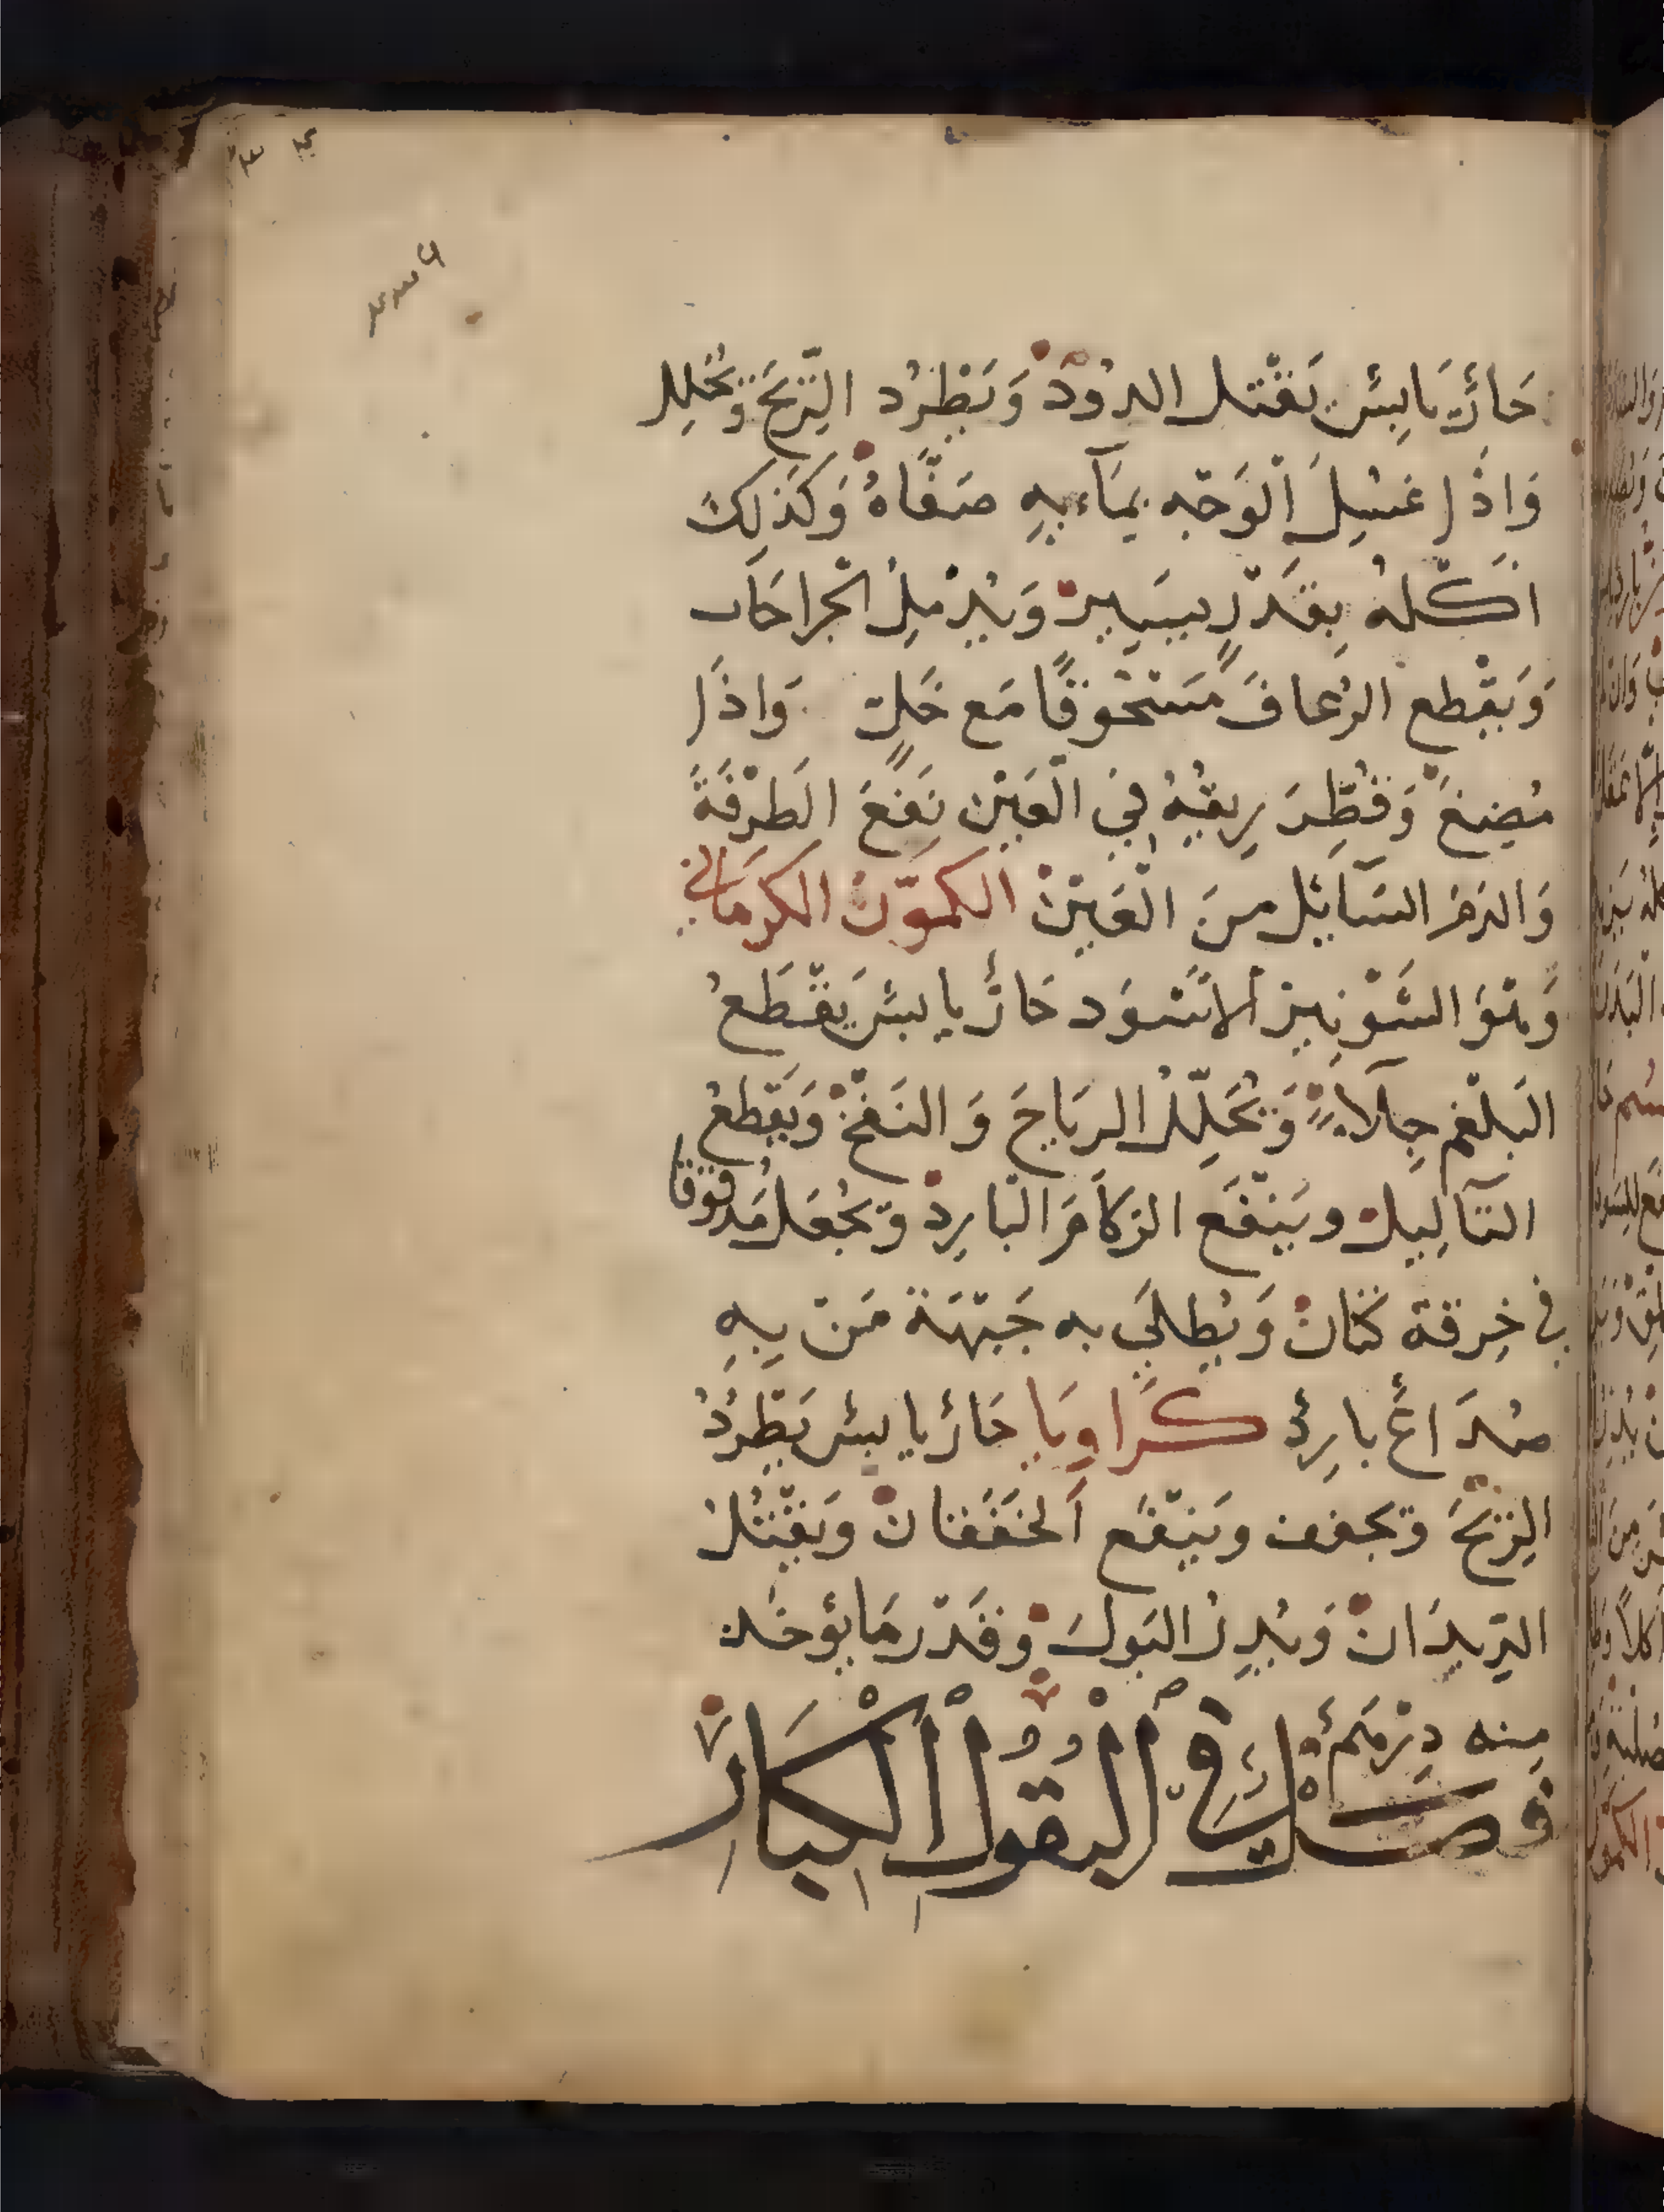 حَارٌّ يَابِسٌ يَقْتل الدُودَ وَيَطْرُد الرِّيحَ وَيُحَلِل
وَاذَا غسِلَ الْوَجْه بمَآءِ بِهِ صَفَّاهُ وَكَذَلِكَ
اكْلهُ بِقَدْرٍ يسَيرٍ وَيُدْمِلُ الْجراحَات
وَيَقْطع الرُعافَ مَسْحُوقًا مَع خَلٍ وَاذَا
مُضِغَ وَقُطِّرَ رِيقُهُ فِي الْعَيْن نَفَعَ الَطرْفَةَ
وَالدَمَ السَآيِل منَ الْعَيْنْ الكمُّون الكرمَاني
وَهْوَ الشَوْنِيز الاَسْوَد حَارٌّ يابسٌ يَقْطَعُ
البَلْغم جِلَآءً وَيُحَلِّلُ الرِيَاحَ وَالنَفْخَ وَيَقطعُ
الثآلِيل ويَنْفَع الزكَامَ الْبارِدْ وَيُجْعَل مَدقوقا
في خِرقة كتانْ وَيُطلَي به جَبْهَة مَنْ بِهِ
صُدَاعٌ بارِدٌ كَرَاوِيَا حَارٌ يابسٌ يَطْرُدُ
الرِيحَ وَيجفف ويَنْفَع اَلخفَقَانْ وَيَقْتُلُ
الدِيدَانْ وَيُدِرُ البَولَ وَقَدْر مَا يؤخَذ
مِنه دِرْهَمٌ
فَصْلٌ فِي الْبُقُولِ الْكِبَارْ